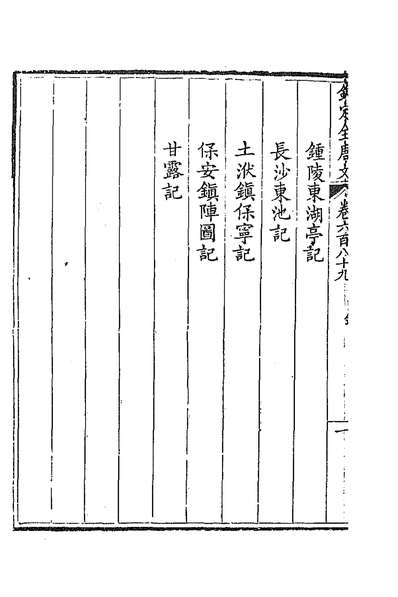 欽定全唐文卷六百八十九
鍾陵東湖亭記
長沙東池記
土洑鎮保寧記
保安鎮陣圖記
甘露記